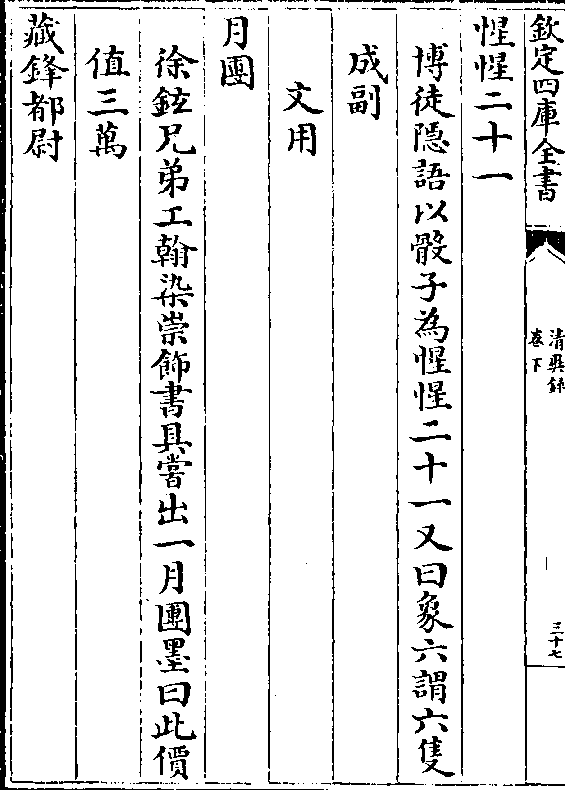 欽定四庫全書
清異録
卷下
三十七
惺惺二十一
博徒隠語以骰子為惺惺二十一又曰象六謂六隻
成副
文用
月團
徐鉉兄弟工翰染崇飾書具嘗出一月團墨曰此價
值三萬
藏鋒都尉